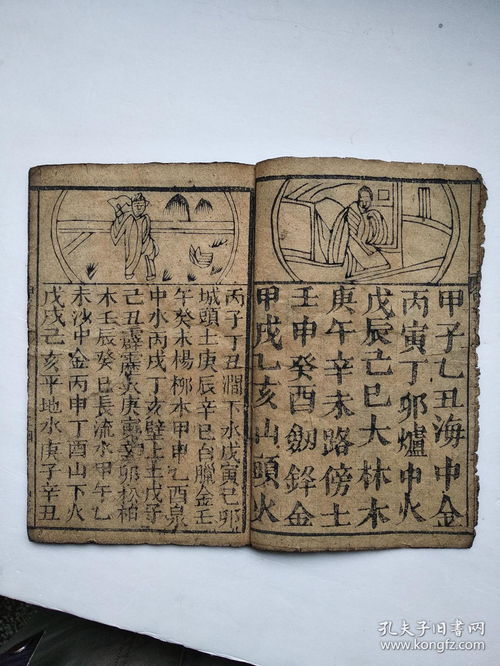 甲子乙丑海中金
丙寅丁卯爐中火
戊辰己巳大林木
庚午辛未路傍土
壬申癸酉劔鋒金
甲戌乙亥山頭火
丙子丁丑澗下水戊寅己卯
城頭土庚辰辛巳白臘金壬
午癸未楊柳木甲申乙酉泉
中水丙戌丁亥壁上土戊子
己丑霹靂火庚寅辛卯松柏
木壬辰癸巳長流水甲午乙
未沙中金丙申丁酉山下火
戊戌己亥平地水庚子辛丑
孔夫子旧书网
www.kongfz.com